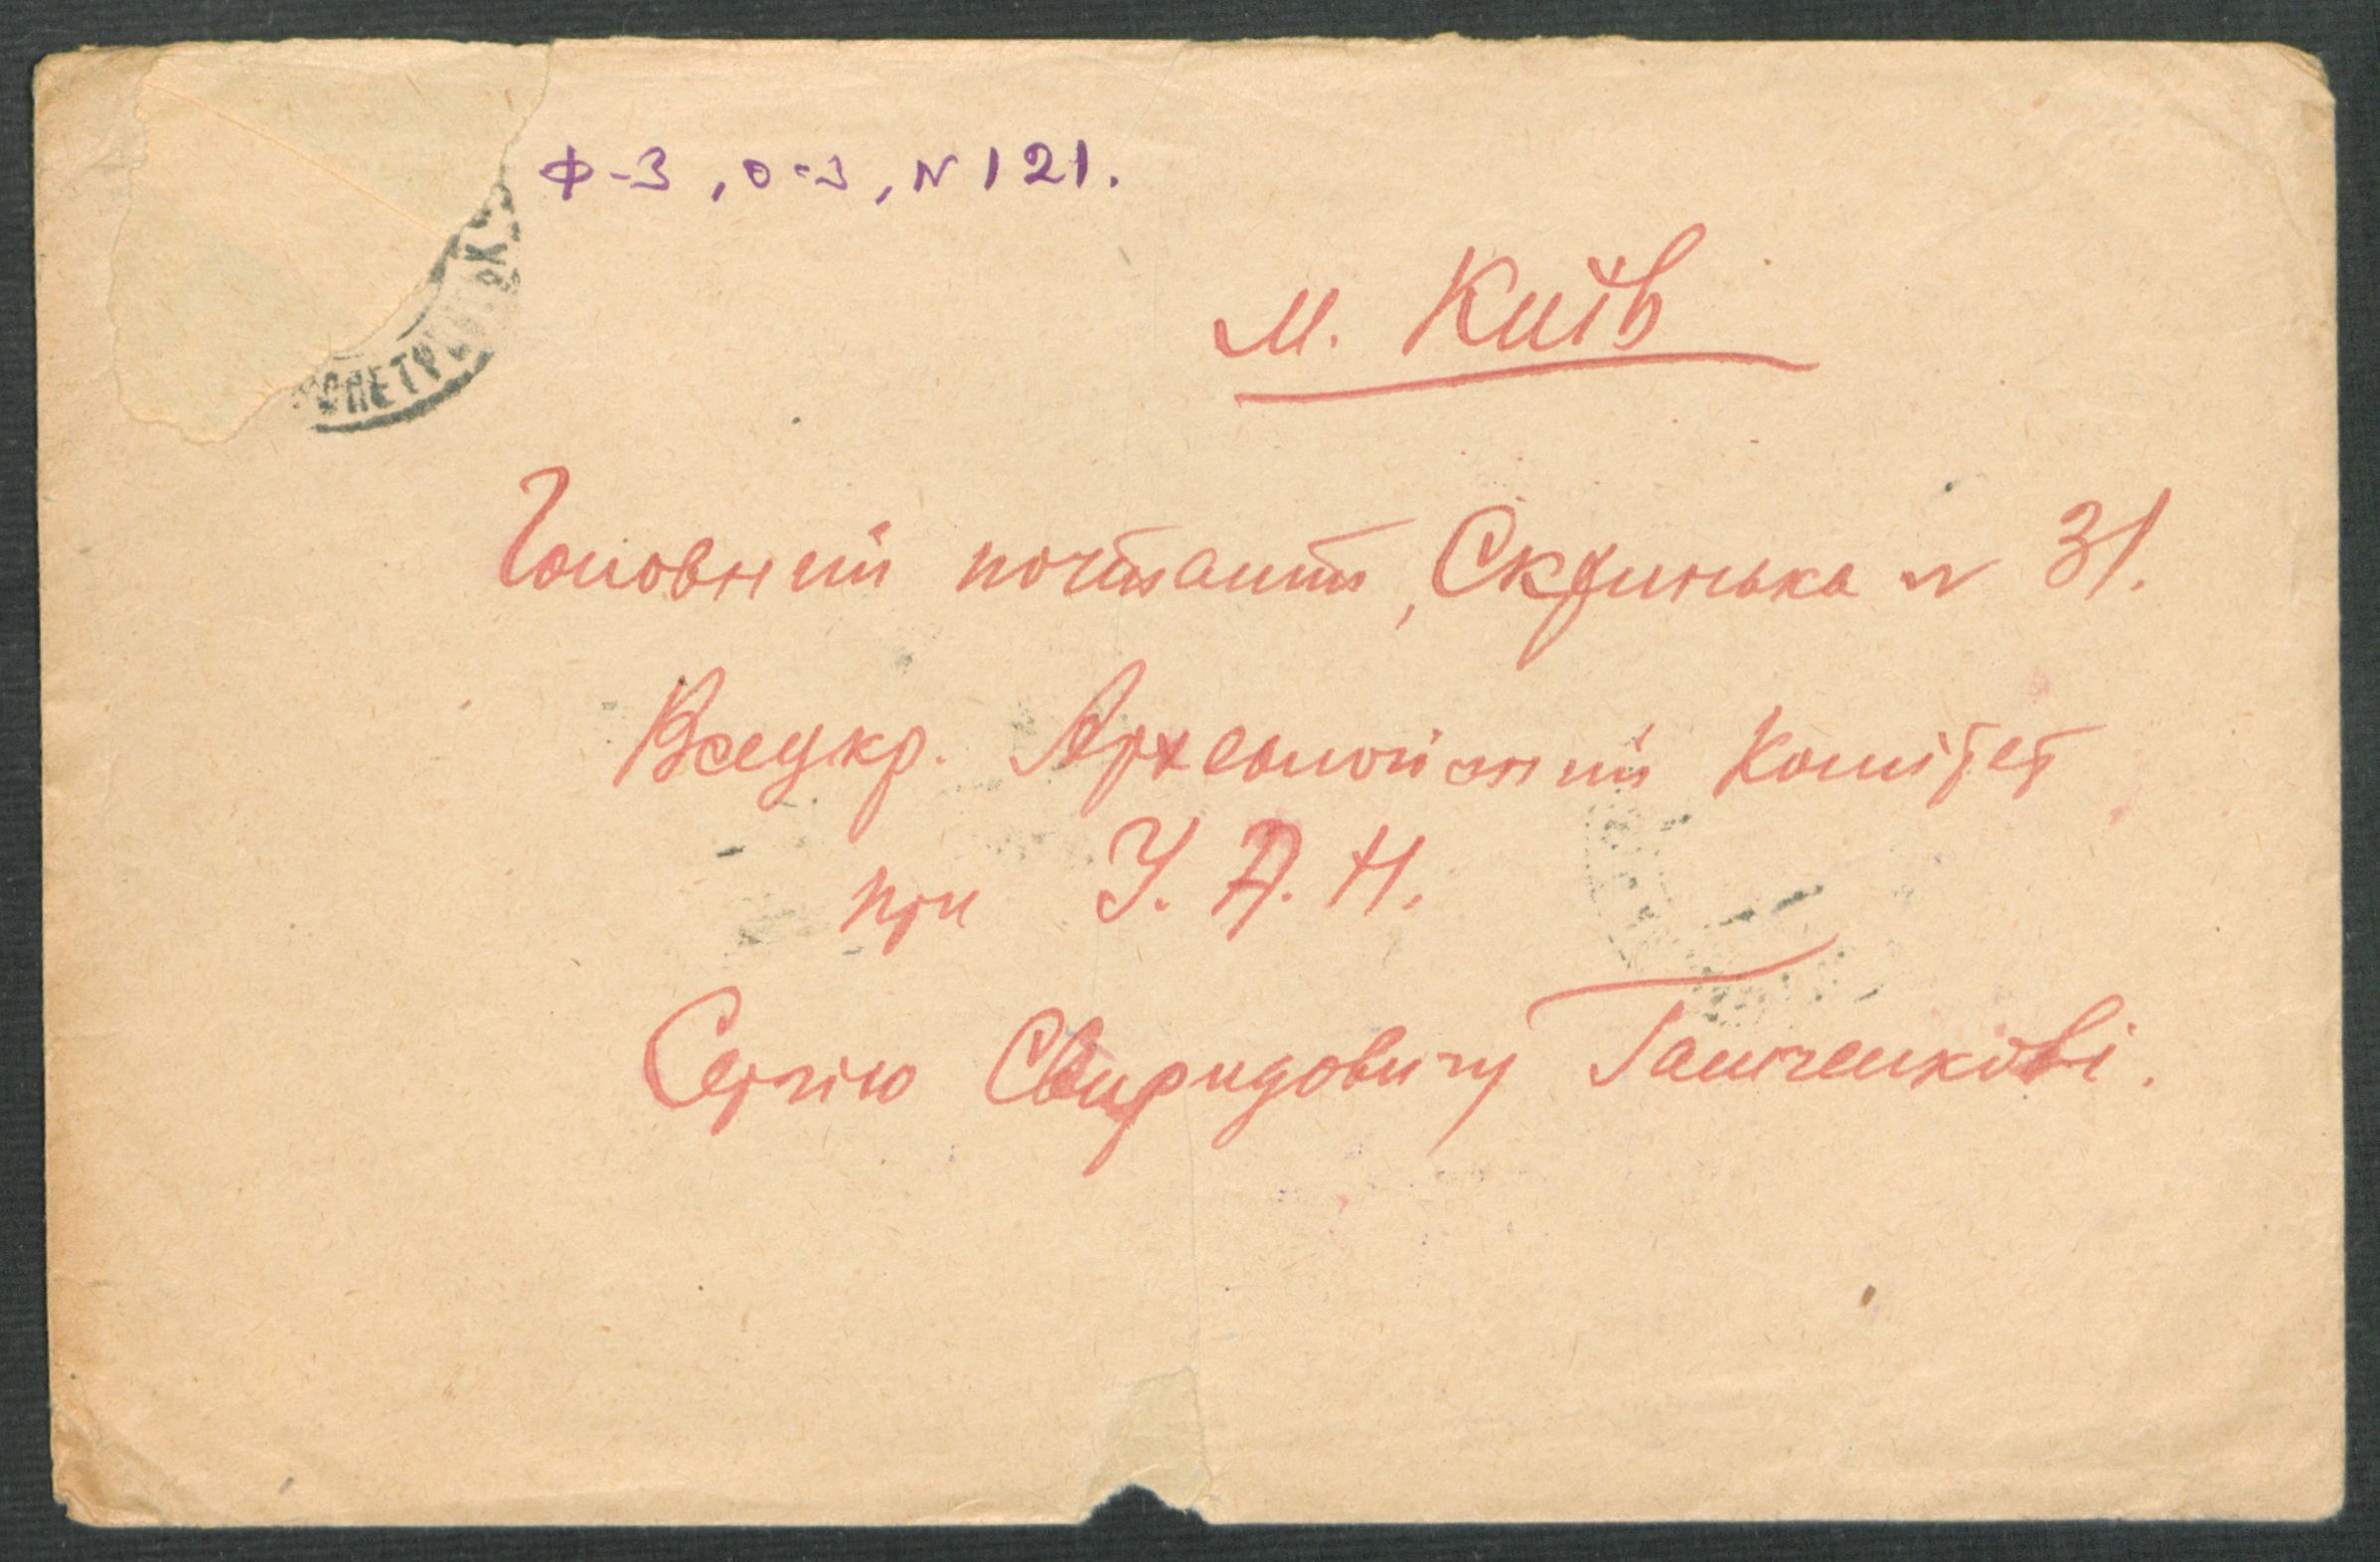 Ф-3, о-3, N 121.
м. Київ
Головний почтамт, Скринька N 31.
Всеукр. Археологічний Комітет
при У. А. Н.
Сергію Свиридовичу Гамченкові.